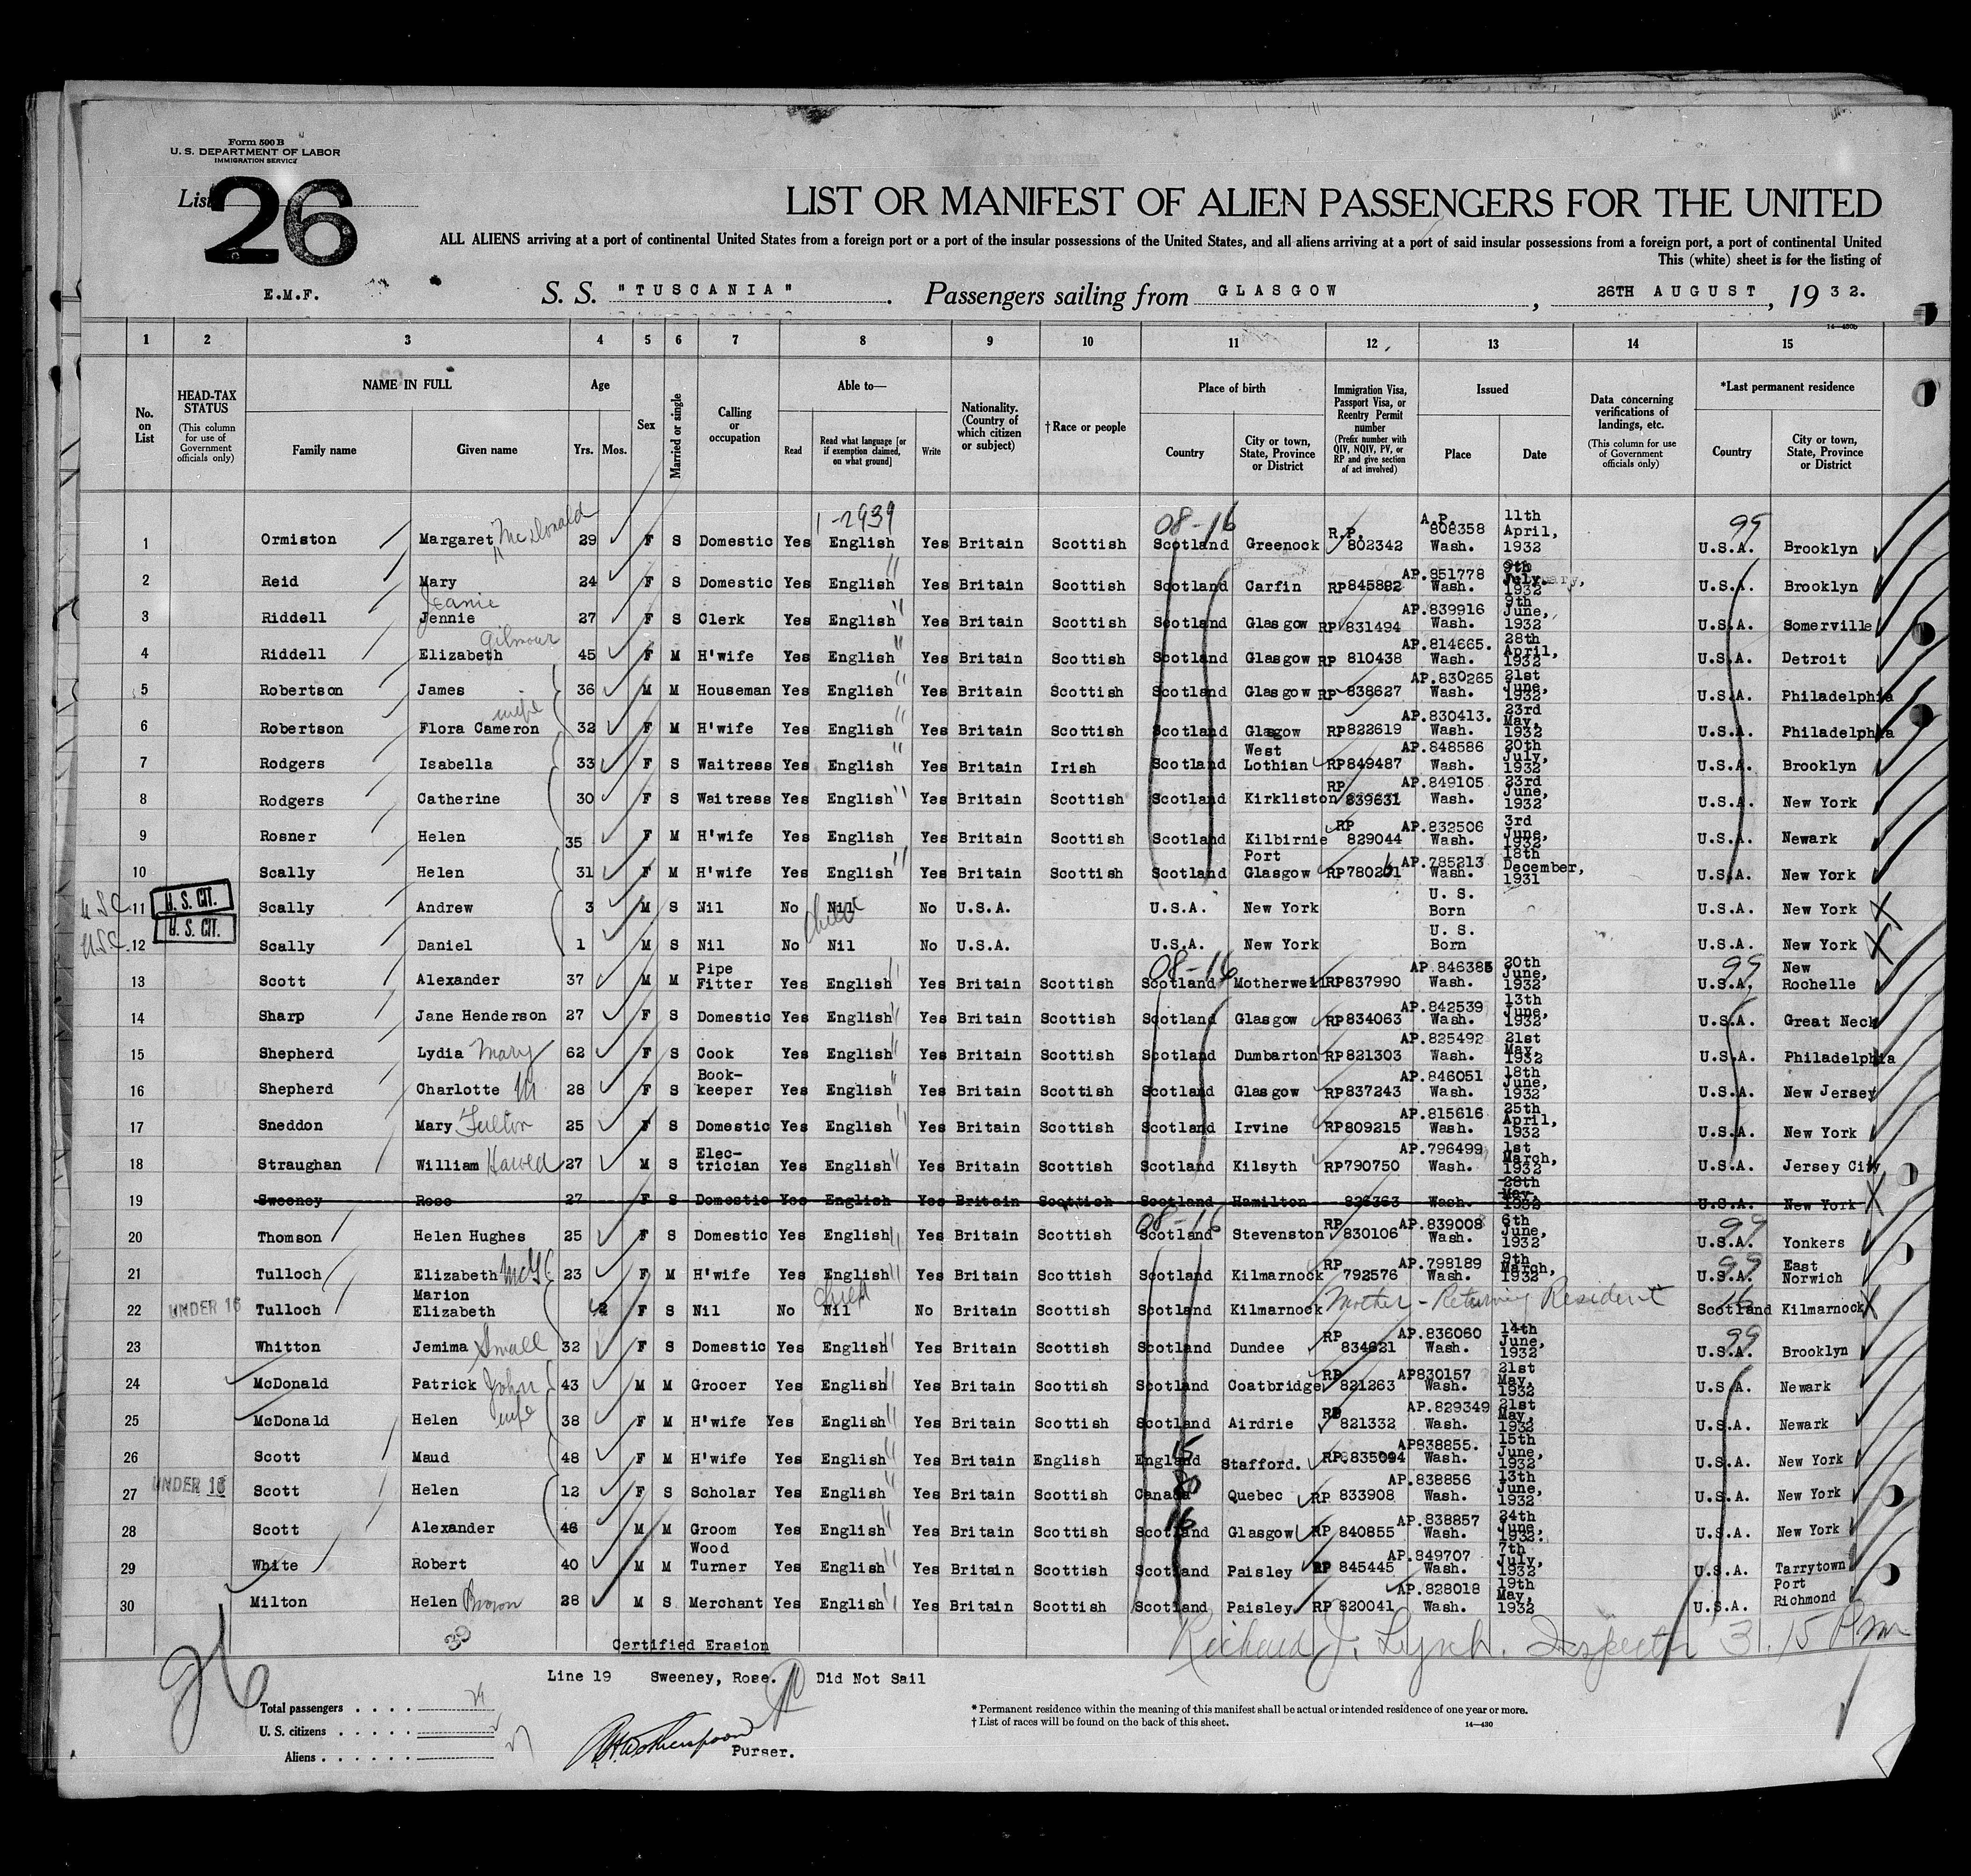 Form 500 B
U. S. DEPARTMENT OF LABOR
IMMIGRATION SERVICE
List 26
LIST OR MANIFEST OF ALIEN PASSENGERS FOR THE UNITED
ALL ALIENS arriving at a port of continental United States from a foreign port or a port of the insular possessions of the United States, and all aliens arriving at a port of said insular possessions from a foreign port, a port of continental United
This (white) sheet is for the listing of
E.M.F. S. S. "TUSCANIA". Passengers sailing from GLASGOW, 26TH AUGUST, 1932.
14—430b
1 2 3 4 5 6 7 8 9 10 11 12 13 14 15
No. on List
HEAD-TAX STATUS (This column for use of Government officials only)
NAME IN FULL Family name Given name
Age Yrs. Mos.
Sex
Married or single
Calling or occupation
Able to— Read Read what language [or if exemption claimed, on what ground] Write
Nationality. (Country of which citizen or subject)
†Race or people
Place of birth Country City or town, State, Province or District
Immigration Visa, Passport Visa, or Reentry Permit number (Prefix number with QIV, NQIV, PV, or RP and give section of act involved)
Issued Place Date
Data concerning verifications of landings, etc. (This column for use of Government officials only)
*Last permanent residence Country City or town, State, Province or District
1-2939 08-16 99
1 Ormiston Margaret McDonald 29 F S Domestic Yes English Yes Britain Scottish Scotland Greenock R.P. 802342 A.P. 808358 Wash. 11th April, 1932 U.S.A. Brooklyn
2 Reid Mary 24 F S Domestic Yes English Yes Britain Scottish Scotland Carfin RP845882 AP.851778 Wash. 9th July, 1932 U.S.A. Brooklyn
3 Riddell Jennie Jeanie 27 F S Clerk Yes English Yes Britain Scottish Scotland Glasgow RP 831494 AP.839916 Wash. 9th June, 1932 U.S.A. Somerville
4 Riddell Elizabeth Gilmour 45 F M H'wife Yes English Yes Britain Scottish Scotland Glasgow RP 810438 AP.814665. Wash. 28th April, 1932 U.S.A. Detroit
5 Robertson James 36 M M Houseman Yes English Yes Britain Scottish Scotland Glasgow RP 838627 AP.830265 Wash. 21st June, 1932 U.S.A. Philadelphia
6 Robertson Flora Cameron wife 32 F M H'wife Yes English Yes Britain Scottish Scotland Glasgow RP822619 AP.830413. Wash. 23rd May, 1932 U.S.A. Philadelphia
7 Rodgers Isabella 33 F S Waitress Yes English Yes Britain Irish Scotland West Lothian RP849487 AP.848586 Wash. 20th July, 1932 U.S.A. Brooklyn
8 Rodgers Catherine 30 F S Waitress Yes English Yes Britain Scottish Scotland Kirkliston RP 839631 AP.849105 Wash. 23rd June, 1932 U.S.A. New York
9 Rosner Helen 35 F M H'wife Yes English Yes Britain Scottish Scotland Kilbirnie RP 829044 AP.832506 Wash. 3rd June, 1932 U.S.A. Newark
10 Scally Helen 31 F M H'wife Yes English Yes Britain Scottish Scotland Port Glasgow RP780201 AP.785213 Wash. 18th December, 1931 U.S.A. New York
USC 11 U. S. CIT. Scally Andrew 3 M S Nil No Nil No U.S.A. U.S.A. New York U. S. Born U.S.A. New York
USC 12 U. S. CIT. Scally Daniel 1 M S Nil No Nil No U.S.A. U.S.A. New York U. S. Born U.S.A. New York
child
08-16 99
13 Scott Alexander 37 M M Pipe Fitter Yes English Yes Britain Scottish Scotland Motherwell RP837990 AP.846385 Wash. 20th June, 1932 U.S.A. New Rochelle
14 Sharp Jane Henderson 27 F S Domestic Yes English Yes Britain Scottish Scotland Glasgow RP834063 AP.842539 Wash. 13th June, 1932 U.S.A. Great Neck
15 Shepherd Lydia Mary 62 F S Cook Yes English Yes Britain Scottish Scotland Dumbarton RP821303 AP.825492 Wash. 21st May, 1932 U.S.A. Philadelphia
16 Shepherd Charlotte M 28 F S Book-keeper Yes English Yes Britain Scottish Scotland Glasgow RP837243 AP.846051 Wash. 18th June, 1932 U.S.A. New Jersey
17 Sneddon Mary Fulton 25 F S Domestic Yes English Yes Britain Scottish Scotland Irvine RP809215 AP.815616 Wash. 25th April, 1932 U.S.A. New York
18 Straughan William Harold 27 M S Elec-trician Yes English Yes Britain Scottish Scotland Kilsyth RP790750 AP.796499 Wash. 1st March, 1932 U.S.A. Jersey City
19 Sweeney Rose 27 F S Domestic Yes English Yes Britain Scottish Scotland Hamilton 826363 Wash. 28th May, 1932 U.S.A. New York
08-16 99
20 Thomson Helen Hughes 25 F S Domestic Yes English Yes Britain Scottish Scotland Stevenston RP 830106 AP.839008 Wash. 6th June, 1932 U.S.A. Yonkers
21 Tulloch Elizabeth 23 F M H'wife Yes English Yes Britain Scottish Scotland Kilmarnock RP 792576 AP.798189 Wash. 9th March, 1932 U.S.A. East Norwich
22 UNDER 16 Tulloch Marion Elizabeth 2 F S Nil No Nil child No Britain Scottish Scotland Kilmarnock Mother - Returning Resident Scotland Kilmarnock
23 Whitton Jemima Small 32 F S Domestic Yes English Yes Britain Scottish Scotland Dundee RP 834621 AP.836060 Wash. 14th June, 1932 U.S.A. Brooklyn
24 McDonald Patrick John 43 M M Grocer Yes English Yes Britain Scottish Scotland Coatbridge RP 821263 AP830157 Wash. 21st May, 1932 U.S.A. Newark
25 McDonald Helen wife 38 F M H'wife Yes English Yes Britain Scottish Scotland Airdrie RP 821332 AP.829349 Wash. 21st May, 1932 U.S.A. Newark
26 Scott Maud 48 F M H'wife Yes English Yes Britain English England Stafford. RP.835094 AP838855. Wash. 15th June, 1932 U.S.A. New York
27 UNDER 16 Scott Helen 12 F S Scholar Yes English Yes Britain Scottish Canada Quebec RP 833908 AP.838856 Wash. 13th June, 1932 U.S.A. New York
28 Scott Alexander 46 M M Groom Yes English Yes Britain Scottish Scotland Glasgow RP 840855 AP.838857 Wash. 24th June, 1932. U.S.A. New York
29 White Robert 40 M M Wood Turner Yes English Yes Britain Scottish Scotland Paisley RP 845445 AP.849707 Wash. 7th July, 1932 U.S.A. Tarrytown
30 Milton Helen Brown 28 M S Merchant Yes English Yes Britain Scottish Scotland Paisley RP 820041 AP.828018 Wash. 19th May, 1932 U.S.A. Port Richmond
Richard J. Lynch. Inspector 3.15 Pm
Certified Erasion
Line 19 Sweeney, Rose. Did Not Sail
26
Total passengers
U. S. citizens
Aliens
Purser.
* Permanent residence within the meaning of this manifest shall be actual or intended residence of one year or more.
† List of races will be found on the back of this sheet.
14—430